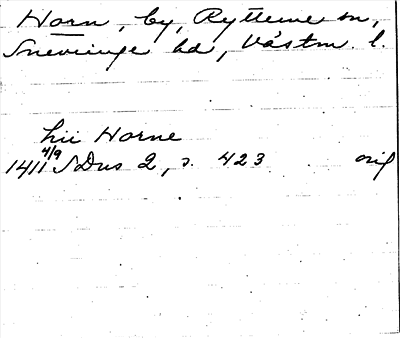 Horn, by, Rytterne sn,
Snevringe hd, Västm. l.
hii Horne
1411 4/9 SDns 2, s. 423 orig